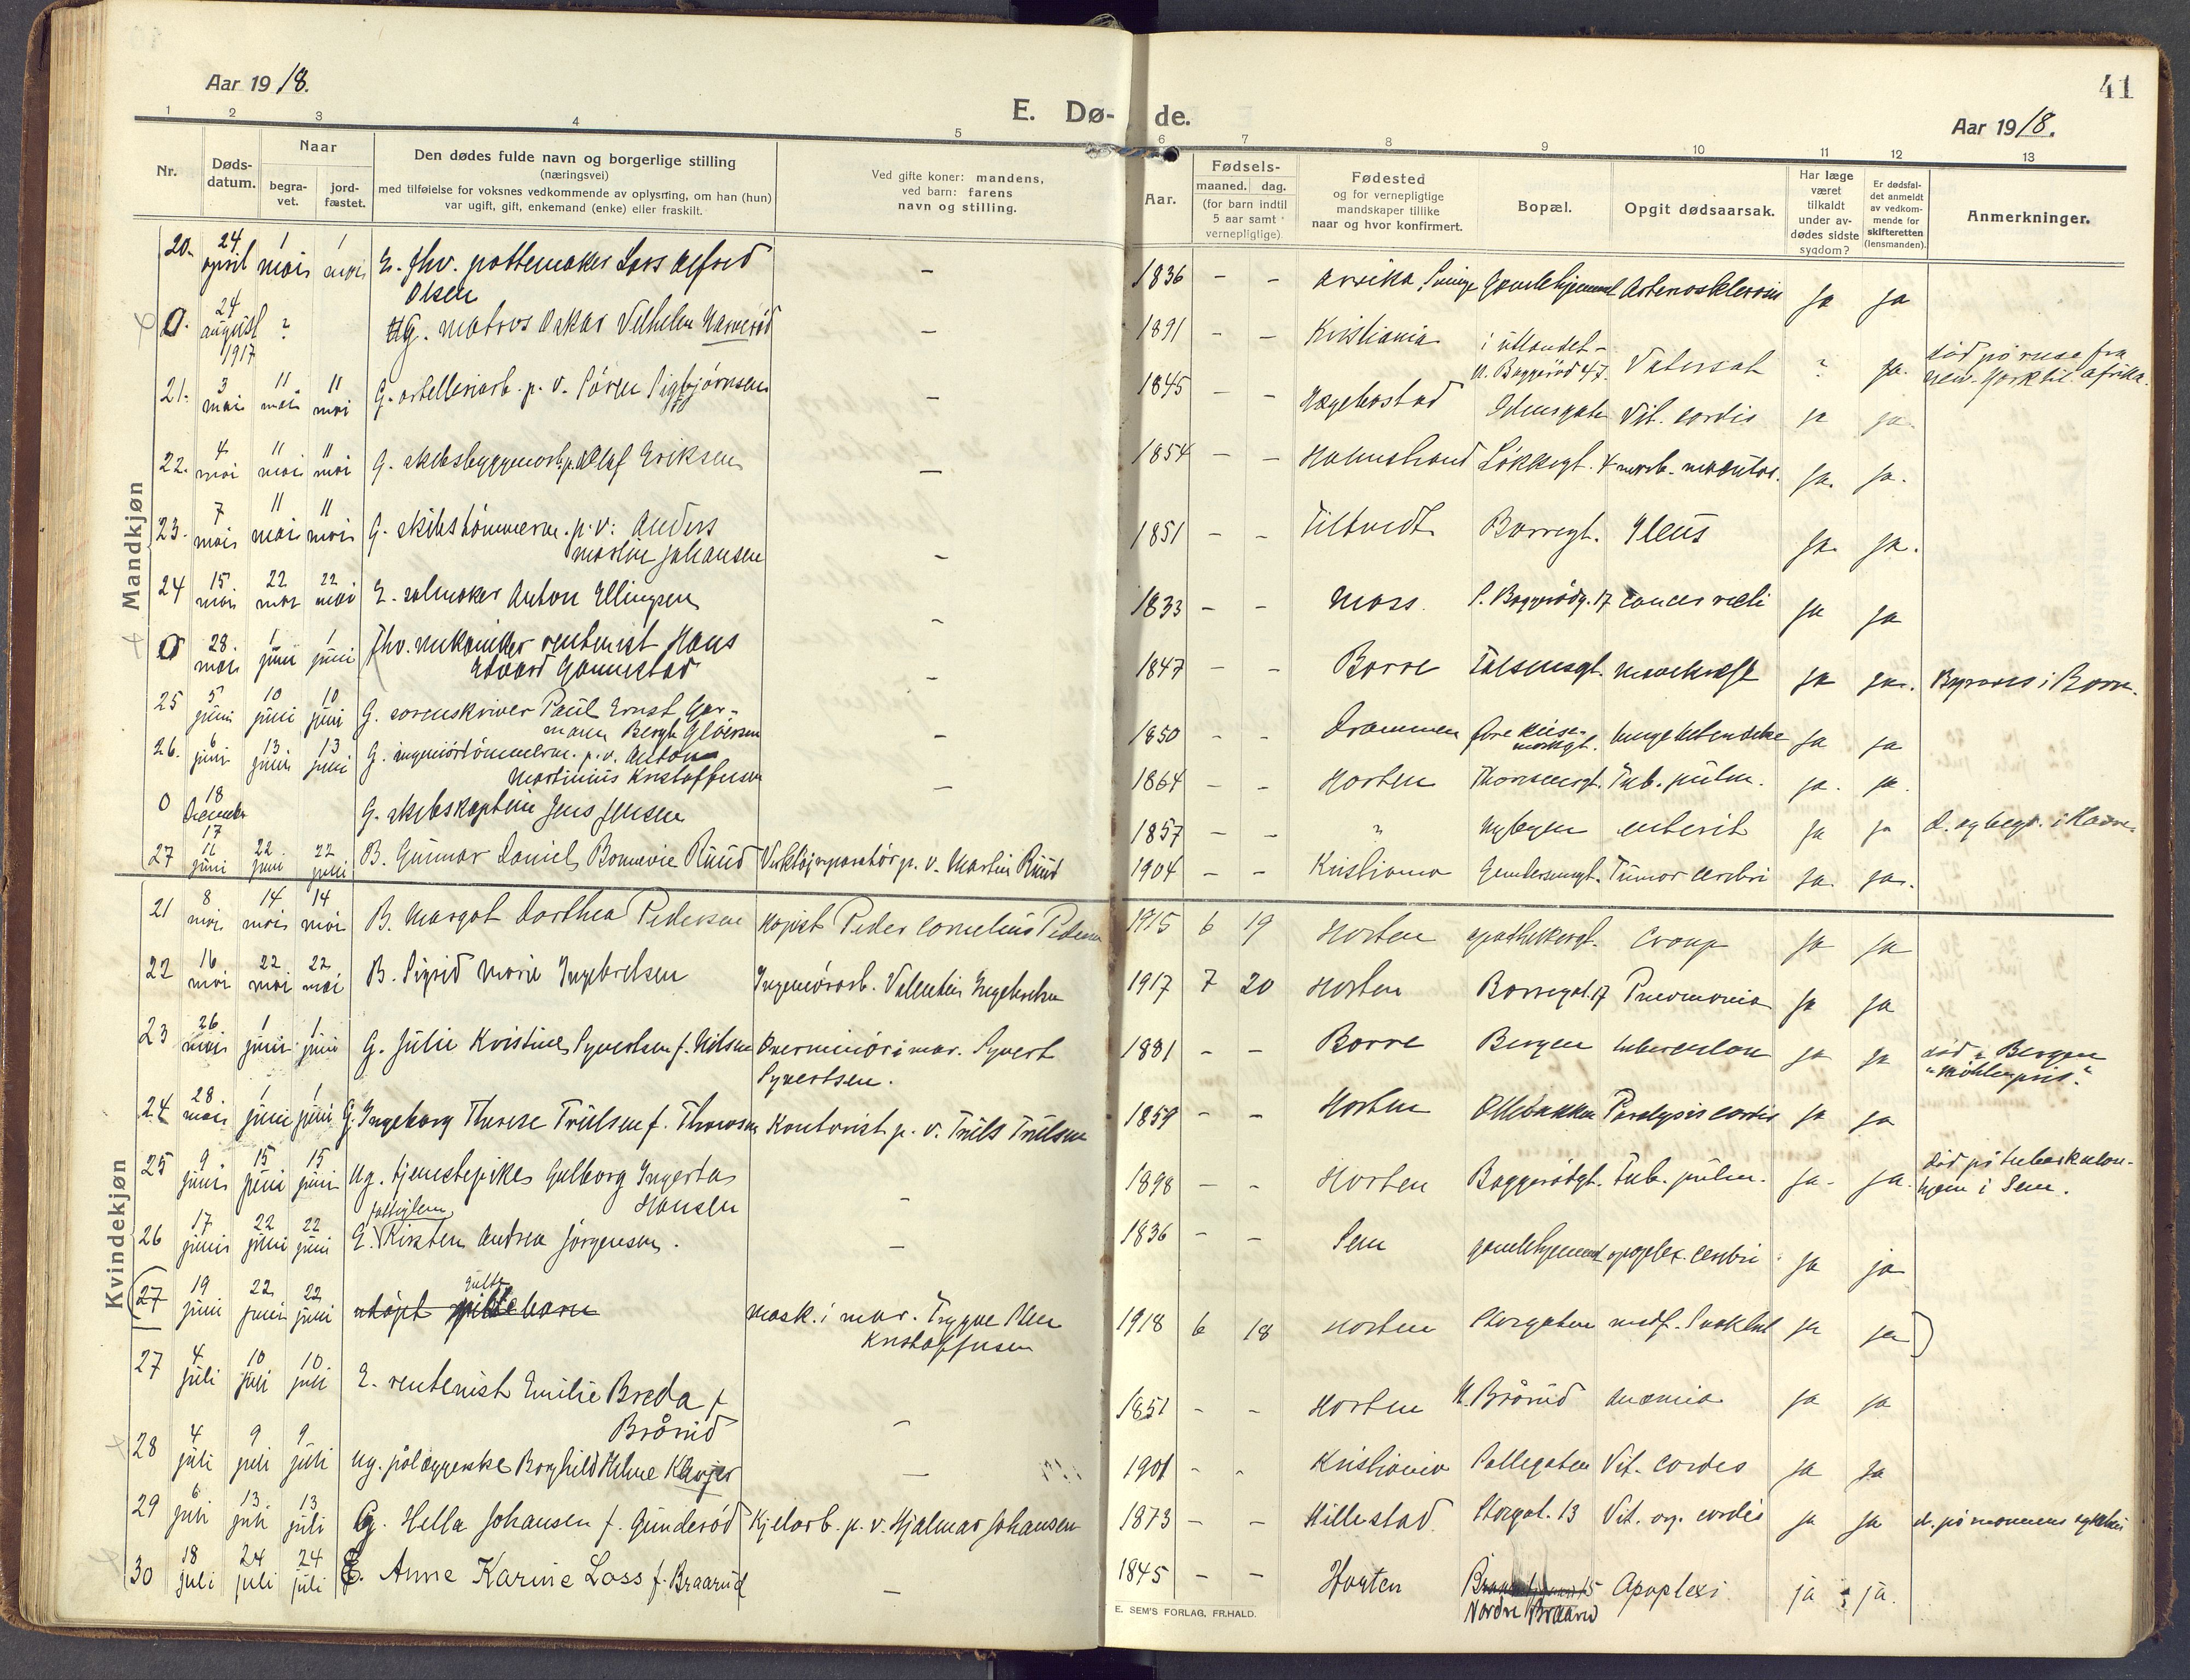 Aar 1918.
E. Dø- de.
41
Aar 1918.
1 2 3 4 5 6 7 8 9 10 11 12 13
Nr.
Døds-datum.
Naar
begra-vet.
jord-fæstet.
Den dødes fulde navn og borgerlige stilling
(næringsvei)
med tilføielse for voksnes vedkommende av oplysning, om han (hun)
var ugift, gift, enkemand (enke) eller fraskilt.
Ved gifte koner: mandens,
ved barn: farens
navn og stilling.
Aar.
Fødsels-
maaned. dag.
(for barn indtil
5 aar samt
vernepligtige)
Fødested
og for vernepligtige
mandskaper tillike
naar og hvor konfirmert.
Bopæl.
Opgit dødsaarsak.
Har læge
været
tilkaldt
under av-
dødes sidste
sygdom?
Er dødsfal-
det anmeldt
av vedkom-
mende for
skifteretten
(lensmanden).
Anmerkninger.
Mandkjøn
20. 24 april 1 mai 1 mai E. fhv. pottemaker Lars Alfred Olsen — 1836 - - Arvika, Sverige Gamlehjemmet Arterosklerosis ja ja
0. 24 august 1917 ? Ug. matros Oskar Vilhelm — 1891 - - Kristiania i utlandet - N. Baggerød 47. ? ja. død på reise fra New-York til Afrika.
21. 3 mai 11 mai 11 mai G. artilleriarb. p. v. Søren Sigbjørnsen — 1845 - - Hægebostad gate Vit. cordis ja ja.
22. 4 mai 11 mai 11 mai G. skibsbyggerarb. p. v. Olaf Eriksen — 1854 - - Holmestrand Løkkegt. 4 morb. ja. ja.
23. 7 mai 11 mai 11 mai G. skibstømmerm. p. v. Anders Martin Johansen — 1851 - - Borregt. Ileus ja. ja.
24 15 mai 22 mai 22 mai E. salmaker Anton Ellingsen — 1833 - - Moss. S. Baggerødg. 17 cancer recti ja ja
0 28. mai 1 juni 1 juni Fhv. mekaniker rentenist Hans Edvard Gannestad — 1847 - - Borre Falsensgt. mavekræft ja ja. i Borre.
25 5 juni 10 juni 10 juni G. sorenskriver Paul Ernst Ger-mann Bergh Gløersen — 1850 - - Drammen lungebetændelse ja ja
26. 6 juni 13 juni 13 juni G. ingeniørtømmerm. p. v. Anton Martinius Kristoffersen — 1864 - - Horten Thoresensgt. Tub. pulm. ja. ja.
0 18 December 17 G. skibskaptein Jens Jensen 1857 - - " Nybyen enterit ja ja d. og begr. i Havre.
27 11 juni 22 juni 22 juni B. Gunnar Daniel Bonnevie Ruud Verktøireparatør p. v. Martin Ruud 1904 - - Kristiania Gundersensgt. Tumor cerebri ja. ja.
Kvindekjøn
21 8 mai 14 mai 14 mai B. Margot Dorthea Pedersen Kopist Peder Cornelius Pedersen 1915 6 19 Horten Apothekergt. Croup ja ja
22 16 mai 22 mai 22 mai B. Sigrid Marie Ingebretsen Ingeniørarb. Valentin Ingebretsen 1917 7 20 Horten Borregat. 17 Pneumonia ja ja
23 26 mai 1 juni 1 juni G. Julie Kristine Syvertsen f. Nilsen Overminør i mar. Syvert Syvertsen. 1881 - - Borre Bergen tuberculose ja ja død i Bergen "Møhlenpris".
24 28 mai 1 juni 1 juni G. Ingeborg Therese Trulsen f. Thoresen Kontorist p. v. Truls Trulsen 1859 - - Horten Øllebakken Paralysis cordis ja ja
25 9 juni 15 juni 15 juni Ug. tjenestepike Gulborg Ingerta Hansen — 1898 - - Horten Baggerødgt. Tub. pulm. ja. ja. død på tuberkulose-hjem i Sem.
26 17 juni 22 juni 22 juni E. fattiglem Kirsten Andrea Jørgensen. — 1836 - - Sem gamlehjemmet apoplex. cerebri ja ja
(27 19 juni 22 juni 22 juni udøpt pikebarn mask. i mar. Trygve Olen Kristoffersen 1918 6 18 Horten Storgaten medf. Svakhet ja ja)
27 4 juli 10 juli 10 juli E. rentenist Emilie Breda f. Brårud — 1851 - - Horten N. Brårud anæmia ja ja
28 4 juli 9 juli 9 juli Ug. pålæggerske Borghild Helene — 1901 - - Kristiania Pallegaten Vit. cordis ja ja
29 6 juli 13 juli 13 juli G. Hella Johansen f. Gunderød Kjelarb. p. v. Hjalmar Johansen 1873 - - Hillestad. Storgat. 13 Vit. org. cordis ja ja d. på marinens sykehus
30 18 juli 24 juli 24 juli E. Anne Karine Loss f. Braarud — 1845 - - Horten Nordre Braarud Apoplexi ja ja.
E. SEM'S FORLAG, FR.HALD.